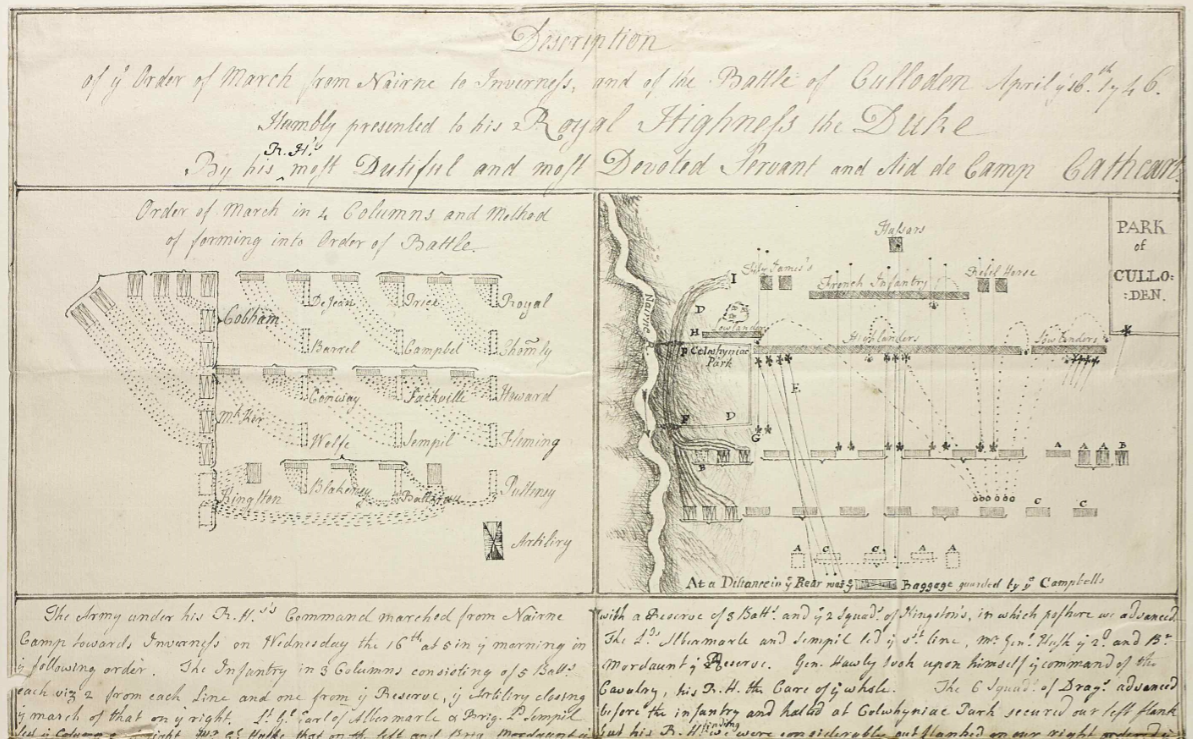 Description
of ẏ Order of March from Nairne to Inverness, and of the Battle of Culloden April ẏ 16.th 1746.
Humbly presented to his Royal Highness the Duke
R.H.s
By his ‸ most Dutiful and most Devoted Servant and Aid de Camp Cathcart.
Order of March in 4 Columns and Method
of forming into Order of Battle.
Cobham
DeJean
Price
Royal
Barrel
Campbel
Mk Ker
Conway
Sackville
Howard
Wolfe
Sempil
Fleming
Kingston
Blakeney
Battereau
Pulteney
Artilíry
PARK
of
CULLO:
:DEN.
Husars
French Infantry
Rebel Horse
I
D
H
Lowlanders
Highlanders
Lowlanders
Nairne
Colwhyniac
Park
E
F
D
G
B
A
A
A
B
C
C
A
C
C
A
A
At a Distance in ẏ Rear was ẏ Baggage guarded by ẏ Campbells
The Army under his R.H.s's Command marched from Nairne
Camp towards Inverness on Wednesday the 16th at 5 in ẏ morning in
ẏ following order. The Infantry in 3 Columns consisting of 5 Batts.
each viz: 2 from each Line and one from ẏ Reserve, ẏ Artilery closing
ẏ march of that on ẏ right. Lt. G. Earl of Albermarle & Brig. Ld. Sempil
with a Reserve of 3 Batts. and ẏ 2 Squads. of Kingston's, in which posture we advanced
The Lds Albermarle and Sempil led ẏ 1st line, Mr. Genl. Husk ẏ 2d. and Br.
Mordaunt ẏ Reserve. Gen. Hawly took upon himself ẏ command of the
Cavalry, his R.H. the Care of ẏ whole. The 6 Squads. of Drags. advanced
before the infantry and halted at Colwhyniac Park secured our left flank
but his R.H. finding we were considerably outflanked on our right ordered